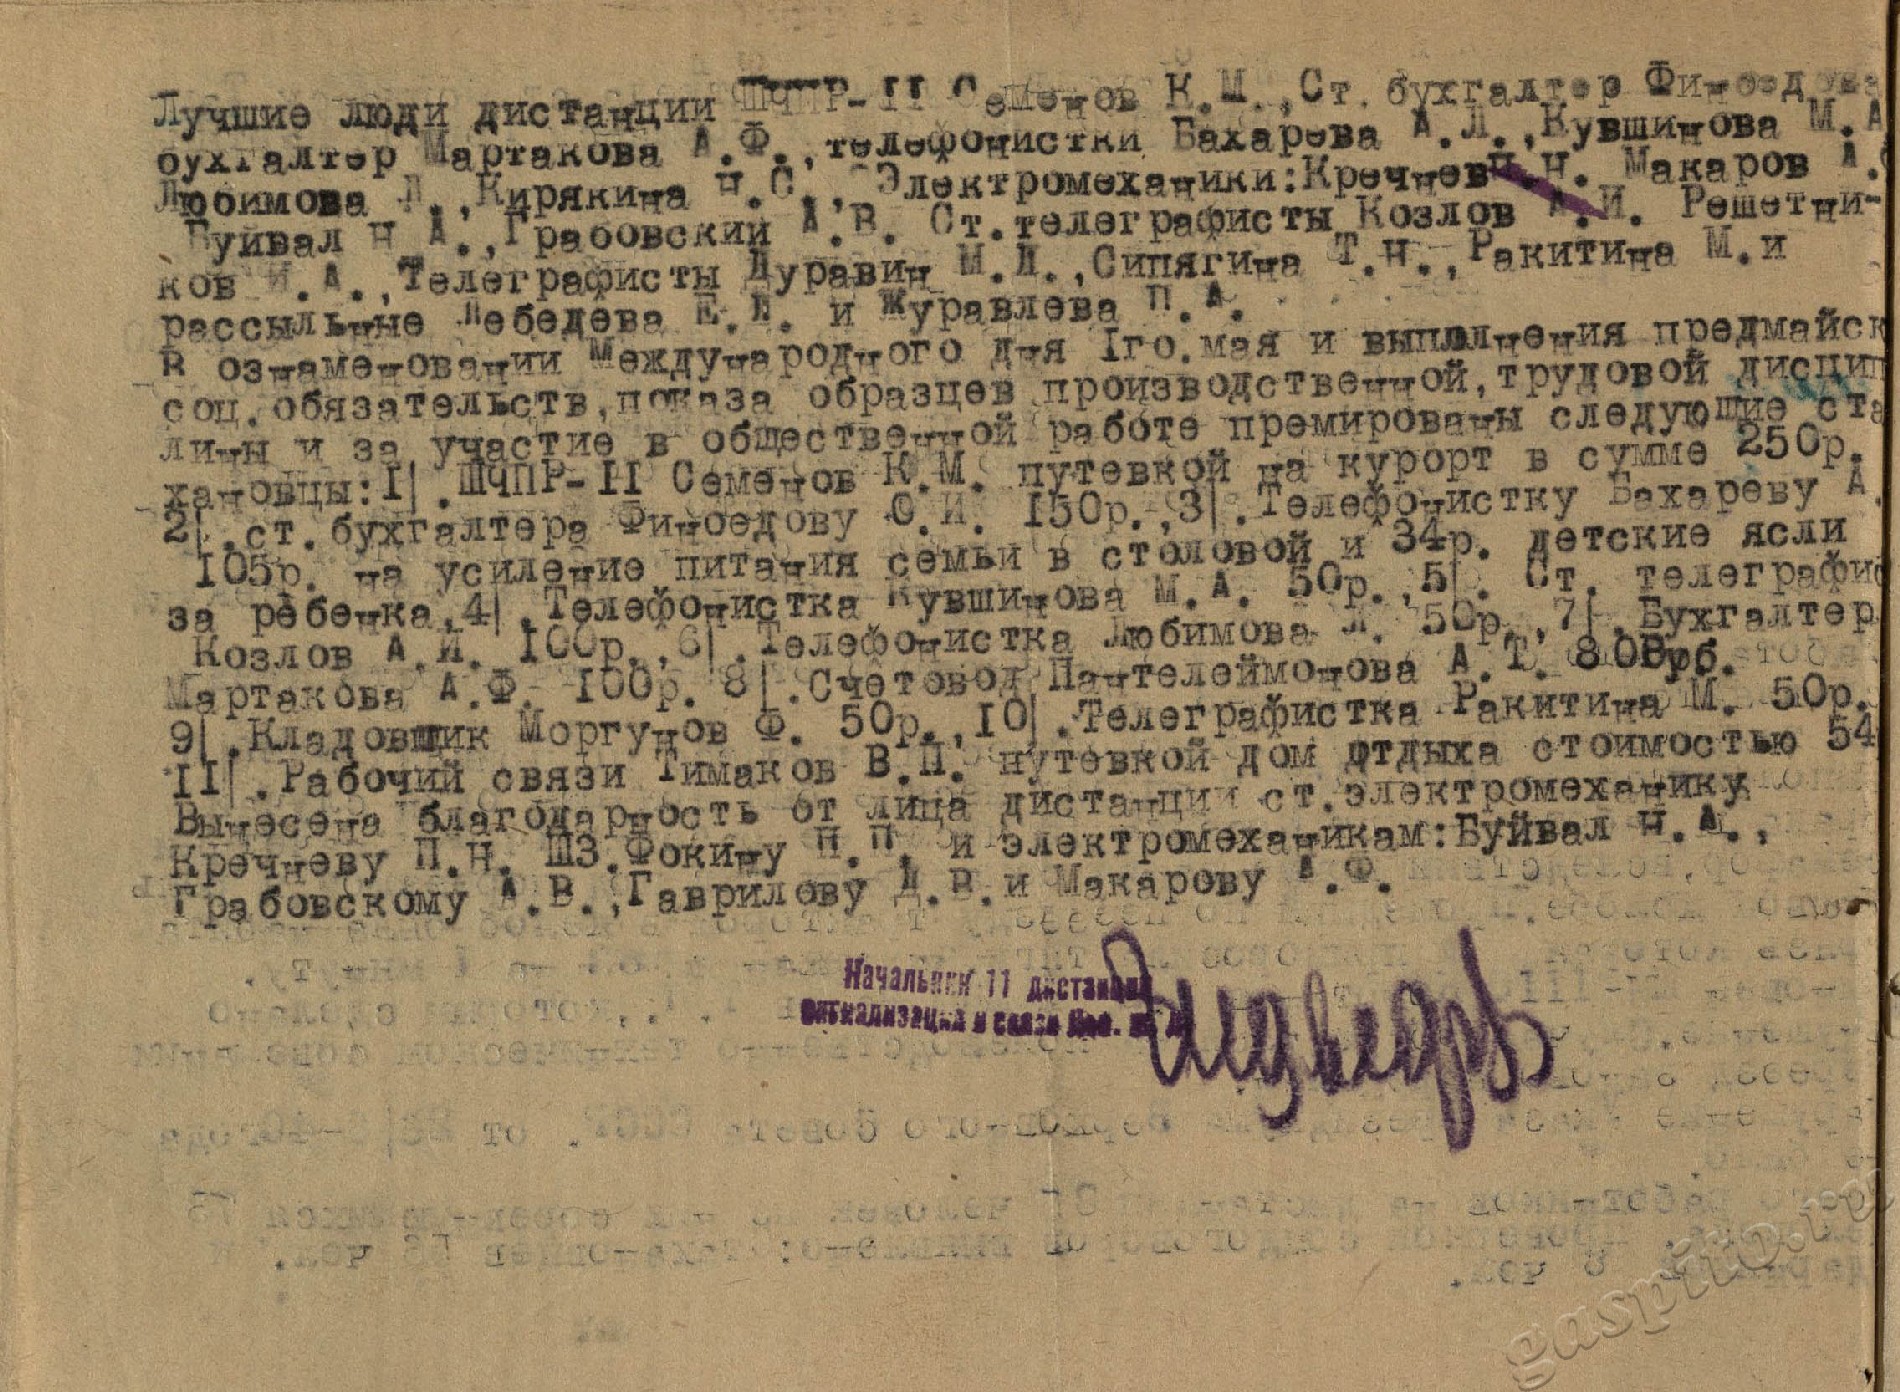 Лучшие люди дистанции ШЧПР-II Семенов К.М.,Ст.бухгалтер Финоедова
бухгалтер Мартакова А.Ф.,телефонистки Бахарева А.Л.,Кувшинова М.А
Любимова Л.,Кирякина Н.С., Электромеханики:Кречнев П.Н. Макаров А.
Буйвал Н.А.,Грабовский А.В. Ст.телеграфисты Козлов А.И. Решетни-
ков И.А.,Телеграфисты Дуравин М.Д.,Сипягина Т.Н.,Ракитина М.и
рассыльные Лебедева Е.Л. и Журавлева П.А.
В ознаменовании Международного дня Iго.мая и выполнения предмайск
соц.обязательств,показа образцев производственной,трудовой дисцип
лины и за участие в общественной работе премированы следующие ста
хановцы:I|.ШЧПР-II Семенов К.М. путевкой на курорт в сумме 250р.
2|.ст.бухгалтера Финоедову О.И. 150р.,3|.Телефонистку Бахареву А.
I05р. на усиление питания семьи в столовой и 34р. детские ясли
за ребенка,4|.Телефонистка Кувшинова М.А. 50р.,5|. Ст. телеграфис
Козлов А.И. I00р.,6|.Телефонистка Любимова Л. 50р.,7|.Бухгалтер
Мартакова А.Ф. I00р. 8|.Счетовод Пантелеймонова А.Т. 80руб.
9|.Кладовщик Моргунов Ф. 50р.,I0|.Телеграфистка Ракитина М. 50р.
II|.Рабочий связи Тимаков В.П. путевкой дом отдыха стоимостью 54
Вынесена благодарность от лица дистанции ст.электромеханику
Кречневу П.Н. ШЗ.Фокину Н.П. и электромеханикам:Буйвал Н.А.,
Грабовскому А.В.,Гаврилову Д.В.и Макарову А.Ф.
Начальник 11 дистанции
сигнализации и связи
Медведев
gaspito.ru